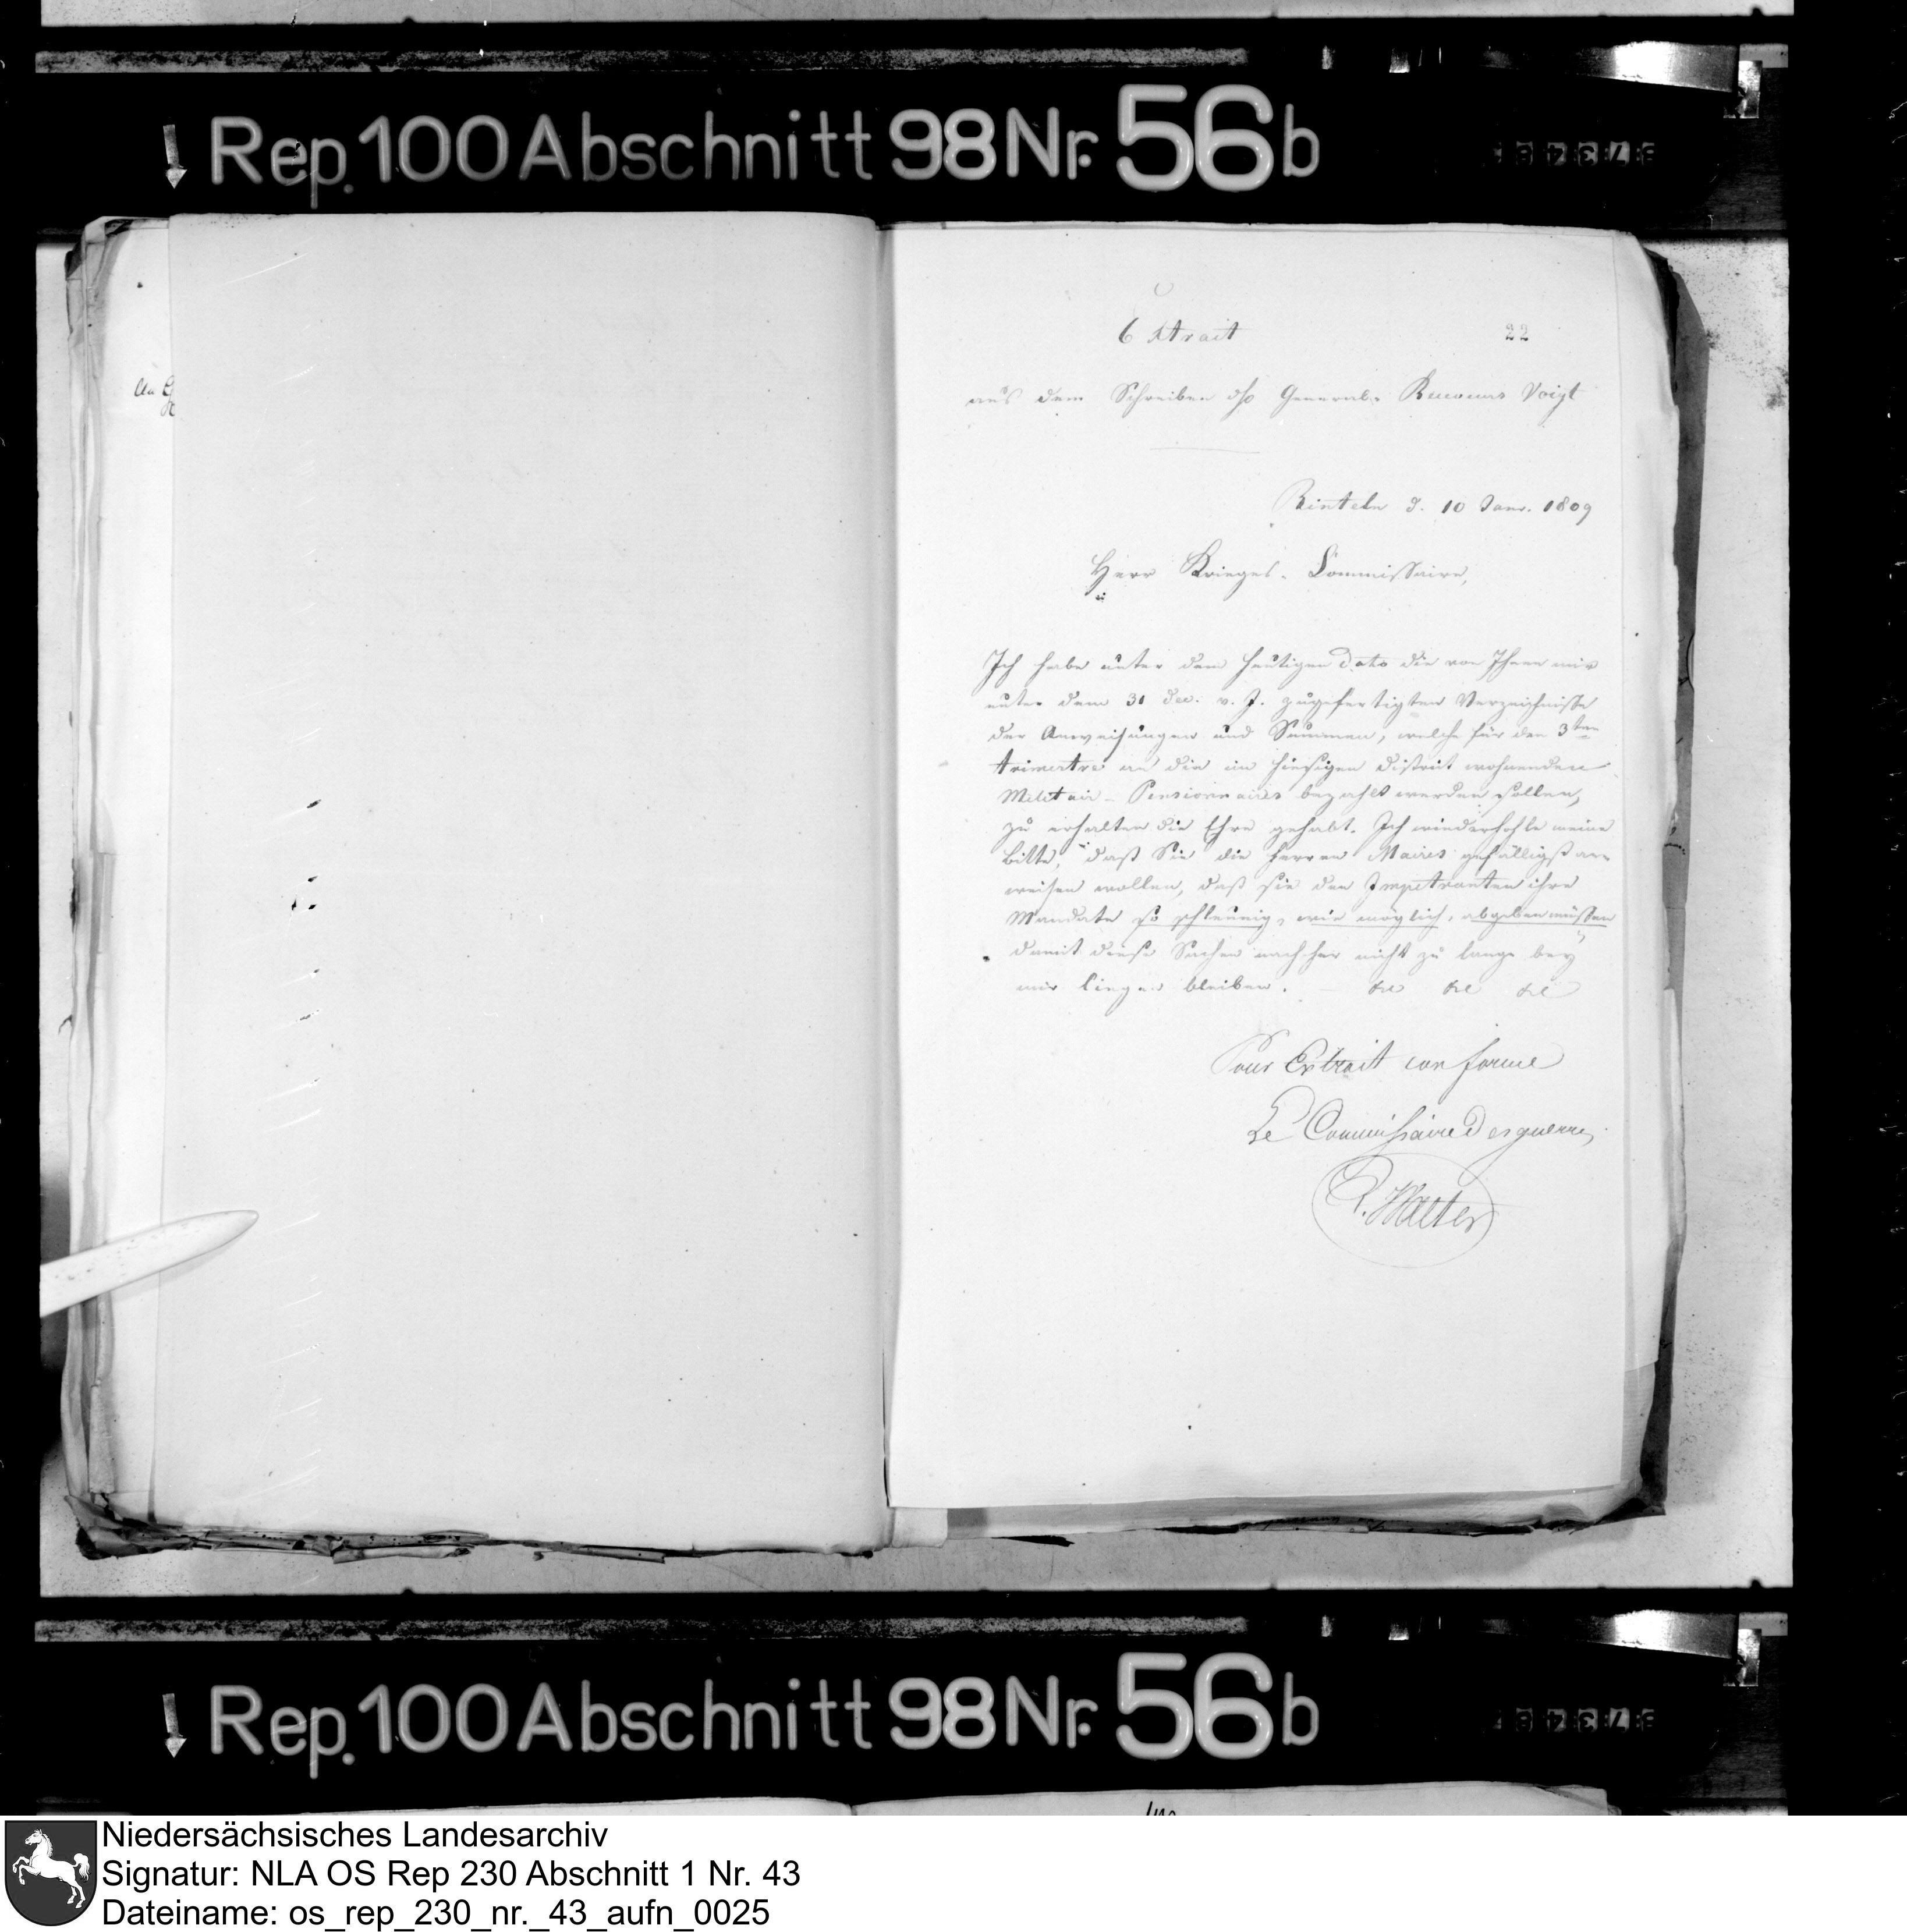 Rep. 100 Abschnitt 98 Nr. 56 b
Extrait
22
aus dem Schreiben des General- Voigt
Rinteln d. 10 Janr. 1809
Herr Krieges-Commissaire,
Ich habe unter dem heutigen Dato die von Ihnen mir
unter dem 31 Dec. v. J. zugefertigten Verzeichnisse
der Anweisungen und Summen, welche für den 3ten
trimestre an die im hiesigen District wohnenden
Militair-Pensionnairs bezahlt werden sollen,
zu erhalten die Ehre gehabt. Ich wiederhohle meine
Bitte, daß Sie die Herren Maires gefälligst an-
weisen wollen, daß sie den Impetranten ihre
Mandate so schleunig, wie möglich, abgeben müssen
damit diese Sachen nachher nicht zu lange bey
mir liegen bleiben. —
Pour Extrait conforme
Le Commissaire Des guerres
P. Walter
Rep. 100 Abschnitt 98 Nr. 56 b
Niedersächsisches Landesarchiv
Signatur: NLA OS Rep 230 Abschnitt 1 Nr. 43
Dateiname: os_rep_230_nr._43_aufn_0025